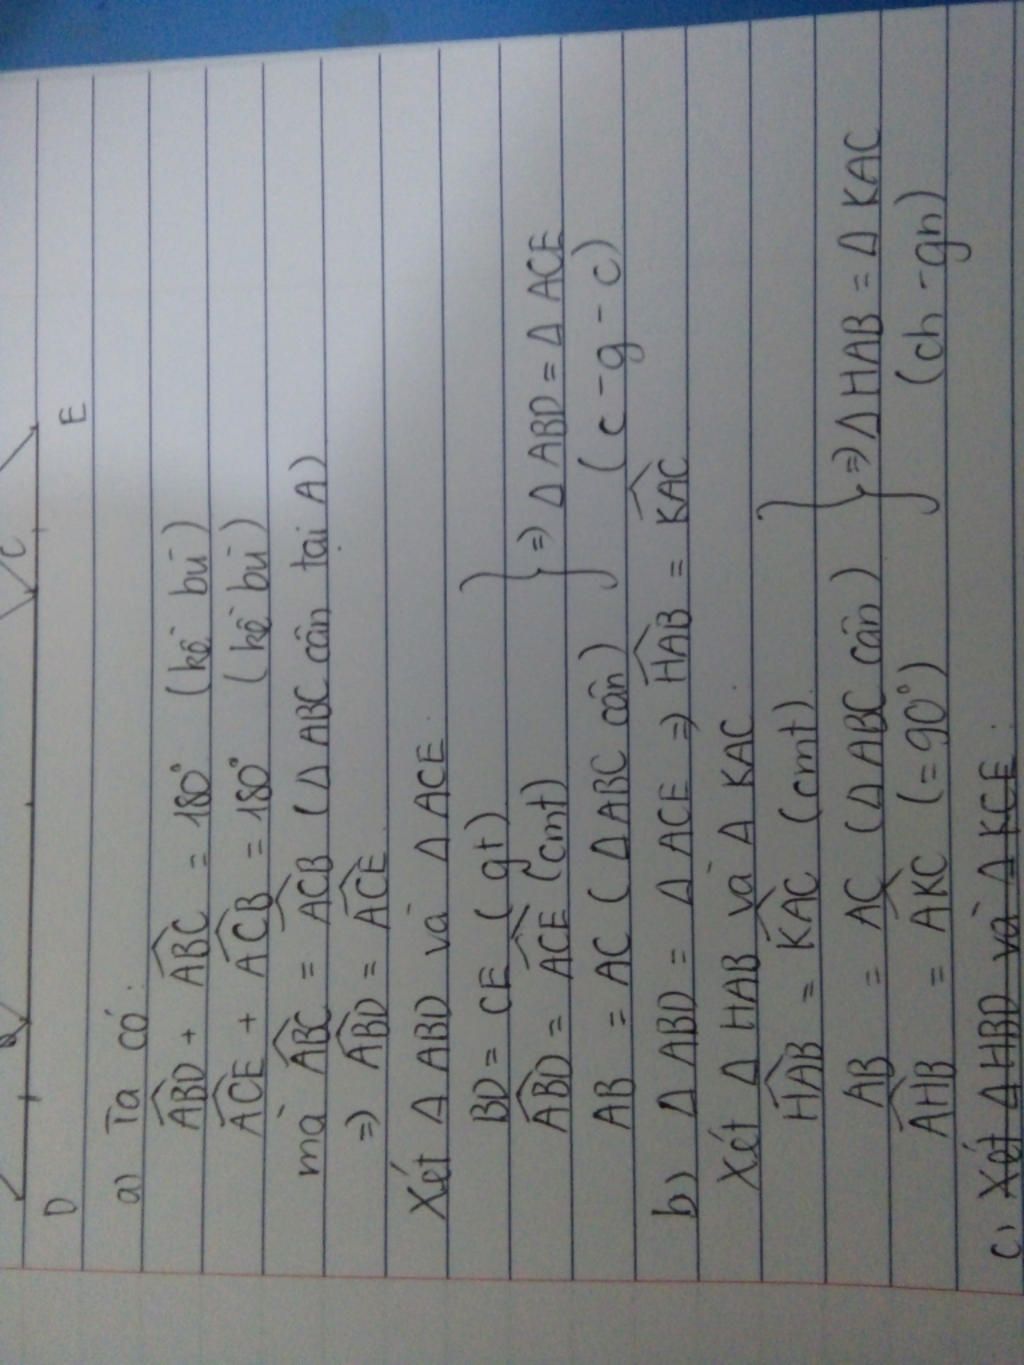 B C
D E
a) Ta có:
\widehat{ABD} + \widehat{ABC} = 180° (kề bù)
\widehat{ACE} + \widehat{ACB} = 180° (kề bù)
mà \widehat{ABC} = \widehat{ACB} (Δ ABC cân tại A)
=) \widehat{ABD} = \widehat{ACE}
Xét Δ ABD và Δ ACE
BD = CE (gt)
\widehat{ABD} = \widehat{ACE} (cmt) } =) Δ ABD = Δ ACE
AB = AC (Δ ABC cân) (c - g - c)
b) Δ ABD = Δ ACE =) \widehat{HAB} = \widehat{KAC}
Xét Δ HAB và Δ KAC
\widehat{HAB} = \widehat{KAC} (cmt)
AB = AC (Δ ABC cân) } =) Δ HAB = Δ KAC
\widehat{AHB} = \widehat{AKC} (= 90°) (ch - gn)
c) Xét Δ HBD và Δ KCE.